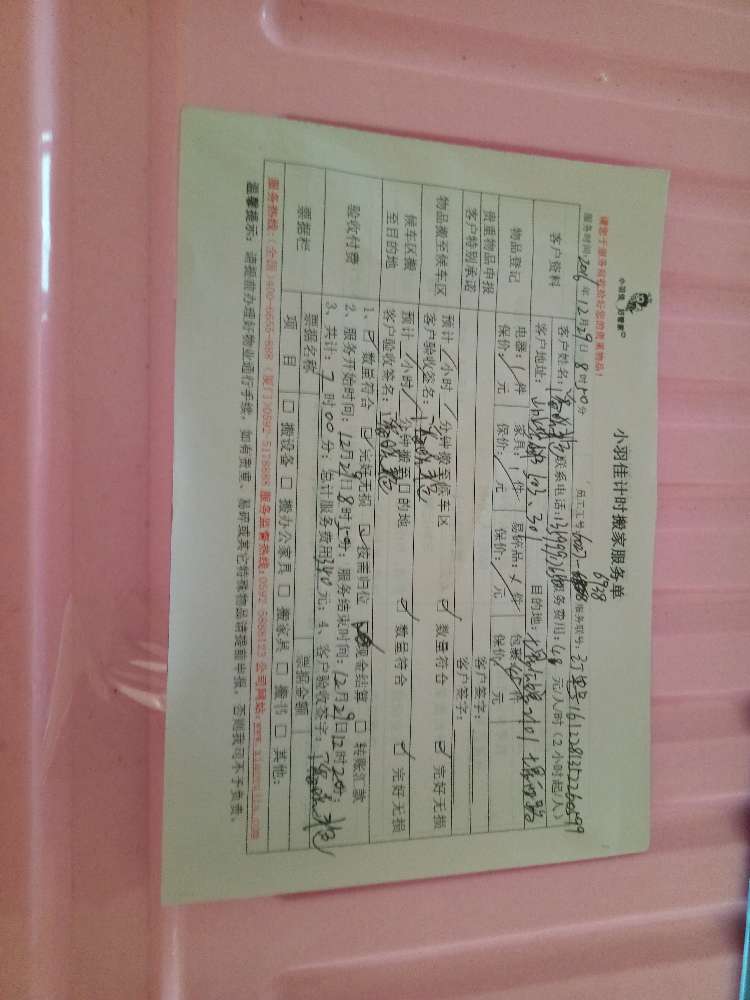 小羽佳 好管家
小羽佳计时搬家服务单
请您于服务前收拾好您的贵重物品!
服务时间:2016年12月29日8时50分 员工工号:6027- 6928 服务联号:
客户资料
客户姓名: 联系电话: 服务费用:48 元/人/时(2小时起/人)
客户地址: 303、301 目的地:
物品登记
电器:/件 家具:/件 易碎品:/件 包裹: 件
保价:/元 保价:/元 保价:/元 保价: 元
贵重物品申报 客户签字:
客户特别承诺 客户签字:
物品搬至候车区
预计/小时/分钟搬至候车区 ☑ 数量符合 ☑ 完好无损
客户验收签名:
候车区搬至目的地
预计/小时/分钟搬至目的地 ☑ 数量符合 ☑ 完好无损
客户验收签名:
验收付费
1、☑数量符合 ☑完好无损 ☑按需归位 ☑现金结算 □转账汇款
2、服务开始时间:12月29日8时50分;服务结束时间:12月29日12时20分;
3、共计:7时00分;总计服务费用340元;4、客户验收签字:
票据栏
票据名称 票据金额
项目 □搬设备 □搬办公家具 □搬家具 □搬书 □其他:
服务热线:(全国)400-6655-888 (厦门)0592-5178888 服务监督热线:0592-5888123 公司网站:
温馨提示:请提前办理好物业通行手续,如有贵重、易碎或其它特殊物品请提前申报,否则我司不予负责。